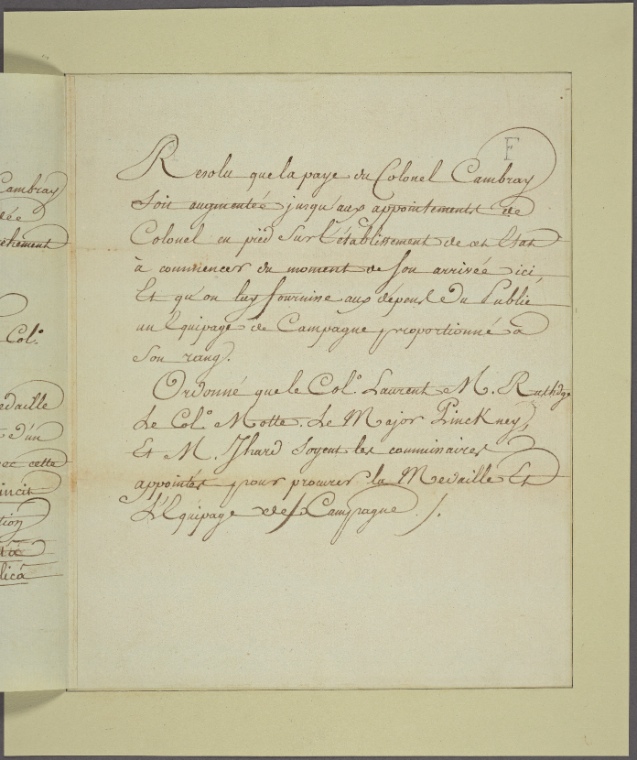 F
Resolu que la paye du Colonel Cambray
Soit augmentée jusqu'aux appointements de
Colonel en pied sur l'établissement de cet Etat
à commencer du moment de son arrivée ici,
Et qu'on luy fournisse aux dépens du Public
un Equipage de Campagne proportionné à
Son rang.
Ordonné que le Colo. Laurent M. Rutledge
Le Colo. Motte. Le Major Pinckney,
Et M. Ihard soyent les commissaires
appointés pour procurer la Medaille Et
L'Equipage de Campagne ./.
Cambray
Colo.
Medaille
d'un
cette